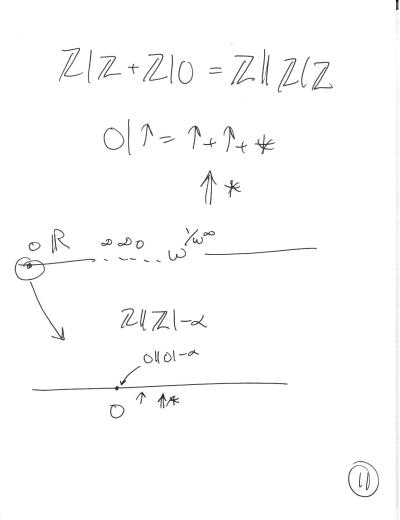 ℤ|ℤ + ℤ|0 = ℤ||ℤ|ℤ
0|↑ = ↑+↑+*
⇑*
0 ℝ ∞ ω^1/ω^∞
ℤ||ℤ|-α
0||0|-α
0 ↑ ⇑*
11